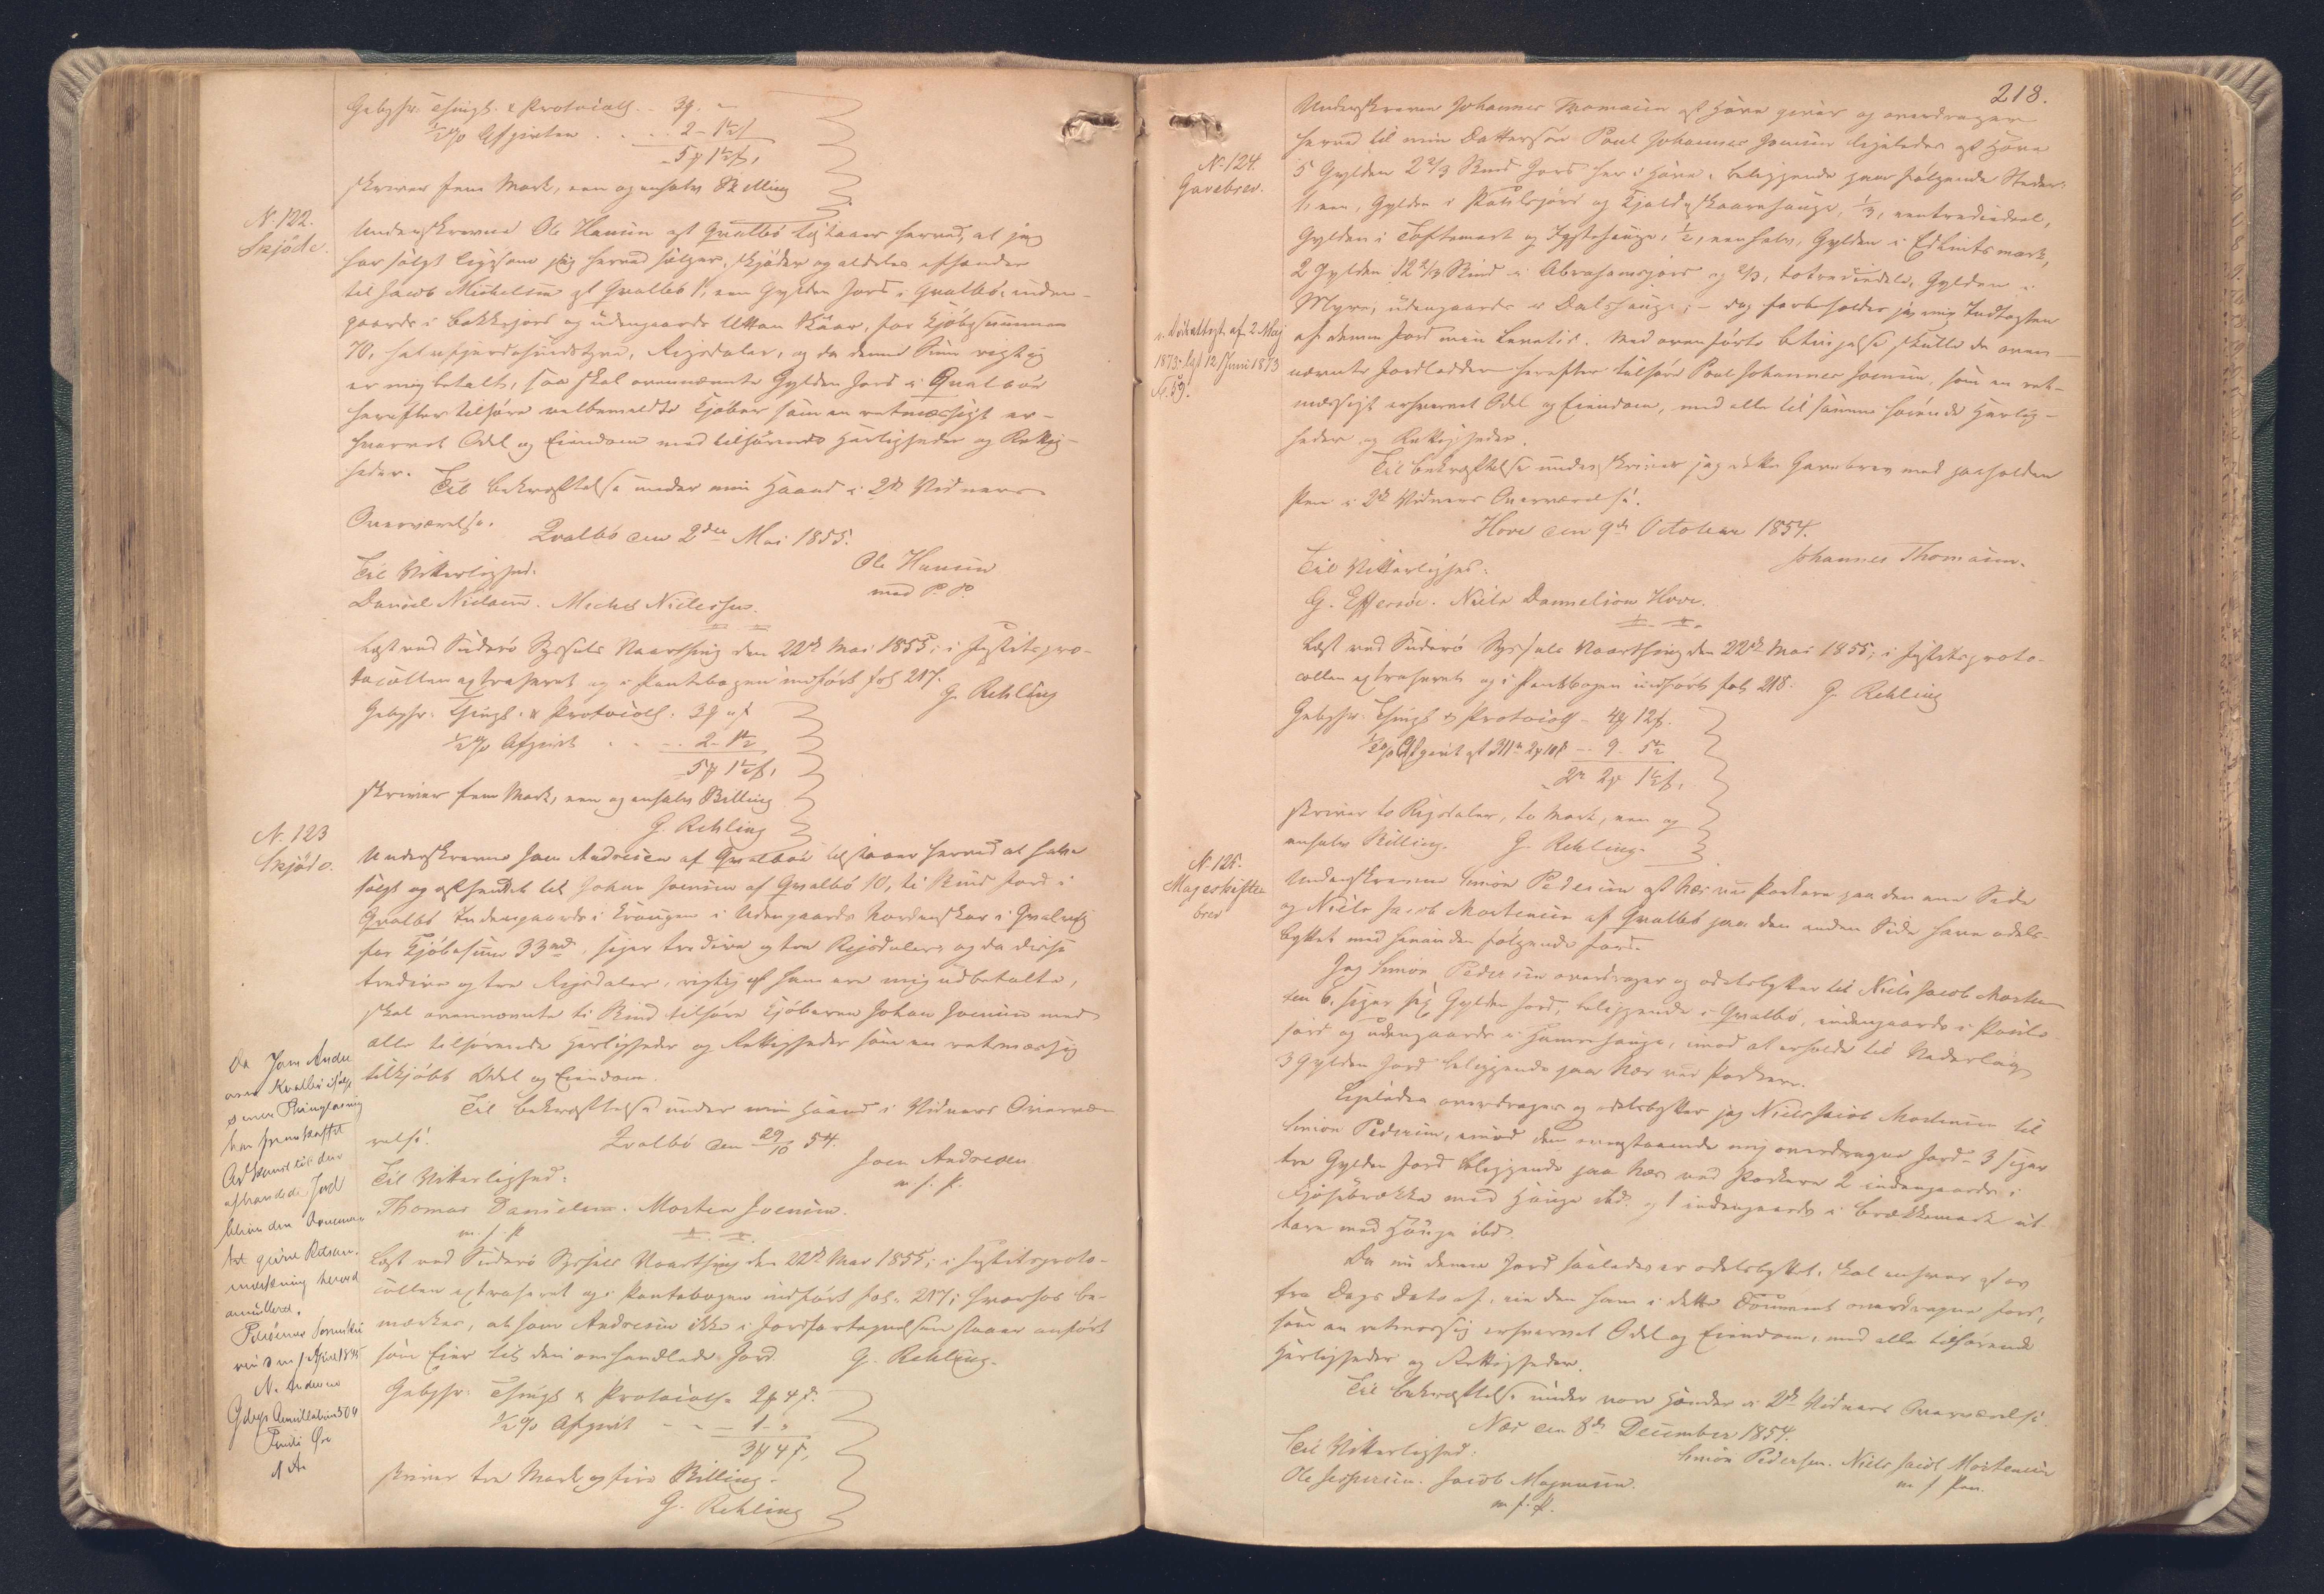 Gebyhr: Thingl. & Protocoll. 3 β "
½ % Afgivten . . . 2 - 1½ β
5 β 1½ β,
skriver fem Mark, een og enhalv Skilling
N. 122.
Skjöde.
Underskrevne Ole Hansen af Qvalbö tilstaaer herved, at jeg
har solgt ligesom jeg herved sælger, skjöder og aldeles afhænder
til Jacob Michelsen af Qvalbö 1, een Gylden Jord i Qvalbö, inden-
gaards i Bakkejord og udengaards Uttan Skaar, for Kjöbesummen
70, halvfjerdsindstyve, Rigsdaler, og da denne Sum rigtig
er mig betalt, saa skal ovennævnte Gylden Jord i Qvalböe
herefter tilhöre velbemeldte Kjöber som en retmæssigt er-
hvervet Odel og Eiendom med tilhörende Herligheder og Rettig-
heder.
Til Bekræftelse under min Haand i 2de Vidners
Overværelse.
Qvalbö den 2den Mai 1855.
Til Vitterlighed:
Ole Hansen
med P. P.
Daniel Nielsen. Michel Nielessen.
Læst ved Suderö Syssels Vaarthing den 22de Mai 1855; i Justitspro-
tocollen extraheret og i Pantebogen indfört fol 217.
G. Rehling
Gebyhr: Thingl. & Protocoll. 3 β " β
½ % Afgivt . . . 2 - 1½
5 β 1½ β,
skriver fem Mark, een og enhalv Skilling
G. Rehling
N. 123
Skjöde.
Underskrevne Joen Andresen af Qvalböe tilstaaer herved at have
solgt og afhændet til Johan Joensen af Qvalbö 10, ti Skind Jord i
Qvalbö Indengaards i Krougen i Udengaards Nordenskar i Qvalvig
for Kjöbesum 33 rd, siger tredive og tre Rigsdaler, og da disse
tredive og tre Rigsdaler, rigtig af ham ere mig udbetalte,
skal ovennævnte ti Skind tilhöre Kjöberen Johan Joensen med
alle tilhörende Herligheder og Rettigheder som en retmæssig
tilkjöbt Odel og Eiendom.
Til Bekræftelse under min Haand i Vidners Overvæ-
relse.
Qvalbö den 29/10 54.
Joen Andresen
m. f. P.
Til Vitterlighed:
Thomas Danielsen. Morten Joensen.
m. f. P
Læst ved Suderö Syssels Vaarthing den 22de Mai 1855; i Justitsproto-
collen extraheret og i Pantebogen indfört fol. 217; hvorhos be-
mærkes, at Joen Andresen ikke i Jordfortegnelsen staaer anfört
som Eier til den omhandlede Jord
G. Rehling.
Gebyhr: Thingl. & Protocoll. 2 β 4 β.
½ % Afgivt - - 1 - "
3 β 4 β,
skriver tre Mark og fire Skilling.
G. Rehling
Da Joen Andre
sen Kvalbö ifølge
har fremskaffet
Adkomst til den
afhændede Jord
bliver den
annulleret.
N. Andersen
218.
N. 124.
Gavebrev.
Underskrevne Johannes Thomasen af Hove giver og overdrager
herved til min Dattersön Poul Johannes Joensen ligeledes af Hove
5 Gylden 2 2/3 Skind Jord her i Hove, beliggende paa fölgende Steder:
1, een, Gylden i Poulsjord og Kjaldeskaarehauge, 1/3, eentrediedeel,
Gylden i Toftemark og Hauge, 1/2, eenhalv, Gylden i mark,
2 Gylden 12 2/3 Skind i Abrahamsjord og 2/3, totrediedele, Gylden i
Myre, udengaards i Hauge; - dog forbeholder jeg mig Indtægten
af denne Jord min Levetid. Med ovenförte Betingelse skulle de oven-
nævnte Jordlodder herefter tilhöre Poul Johannes Joensen, som en ret-
mæssigt erhvervet Odel og Eiendom, med alle til samme hörende Herlig-
heder og Rettigheder.
Til Bekræftelse underskriver jeg dette Gavebrev med paaholden
Pen i 2de Vidners Overværelse.
Hove den 9de October 1854.
Johannes Thomasen.
Til Vitterlighed:
G. Effersöe. Niels Danielsen Hove.
Læst ved Suderö Syssels Vaarthing den 22de Mai 1855; i Justitsproto-
collen extraheret og i Pantebogen indfört fol. 218.
G. Rehling
Gebyhr. Thingl. & Protocoll - 4 β 12 β.
½ % Afgivt af 311 rd 2 β 10 β - - 9 5½
2 rd 2 β 1½ β,
skriver to Rigsdaler, to Mark, een og
enhalv Skilling.
G. Rehling.
af 2 Maj
1873 12 Juni 1873
N. 125.
Mageskifte
brev
Underskrevne Simon Pedersen af Næs ved Porkere paa den ene Side
og Niels Jacob Mortensen af Qvalbö paa den anden Side have odels-
byttet med hinanden fölgende Jord:
Jeg Simon Pedersen overdrager og odelsbytter til Niels Jacob Morten-
sen 6, siger sex Gylden Jord, beliggende i Qvalbö, indengaards i Pouls-
jord og udengaards i Hamrehauge, imod at erholde til Vederlag
3 Gylden Jord beliggende paa Næs ved Porkere.
Ligeledes overdrager og odelsbytter jeg Niels Jacob Mortensen til
Simon Pedersen, imod den ovenstaaende mig overdragne Jord - 3 siger
tre Gylden Jord beliggende paa Næs ved Porkere 2 indengaards i
med Hauge ibd. og 1 indengaards i Brekkemark
med Hauge ibd.
Da nu denne Jord saaledes er odelsbyttet, skal enhver af os
fra Dags Dato af, eie den ham i dette Document overdragne Jord,
som en retmæssig erhvervet Odel og Eiendom, med alle tilhörende
Herligheder og Rettigheder.
Til Bekræftelse under vore Hænder i 2de Vidners Overværelse.
Næs den 8de December 1854.
Til Vitterlighed:
Simon Pedersen. Niels Jacob Mortensen
m f Pen.
Ole Jespersen. Jacob Magnusen.
m. f. P.